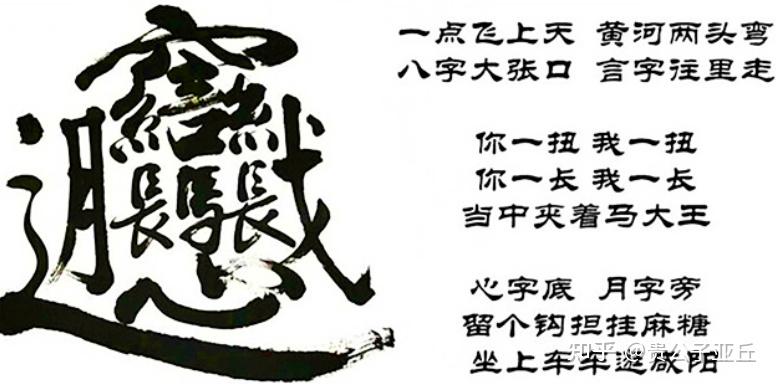 𰻞
一点飞上天 黄河两头弯
八字大张口 言字往里走
你一扭 我一扭
你一长 我一长
当中夹着马大王
心字底 月字旁
留个钩担挂麻糖
坐上车车逛咸阳
知乎 @贵公子亚丘